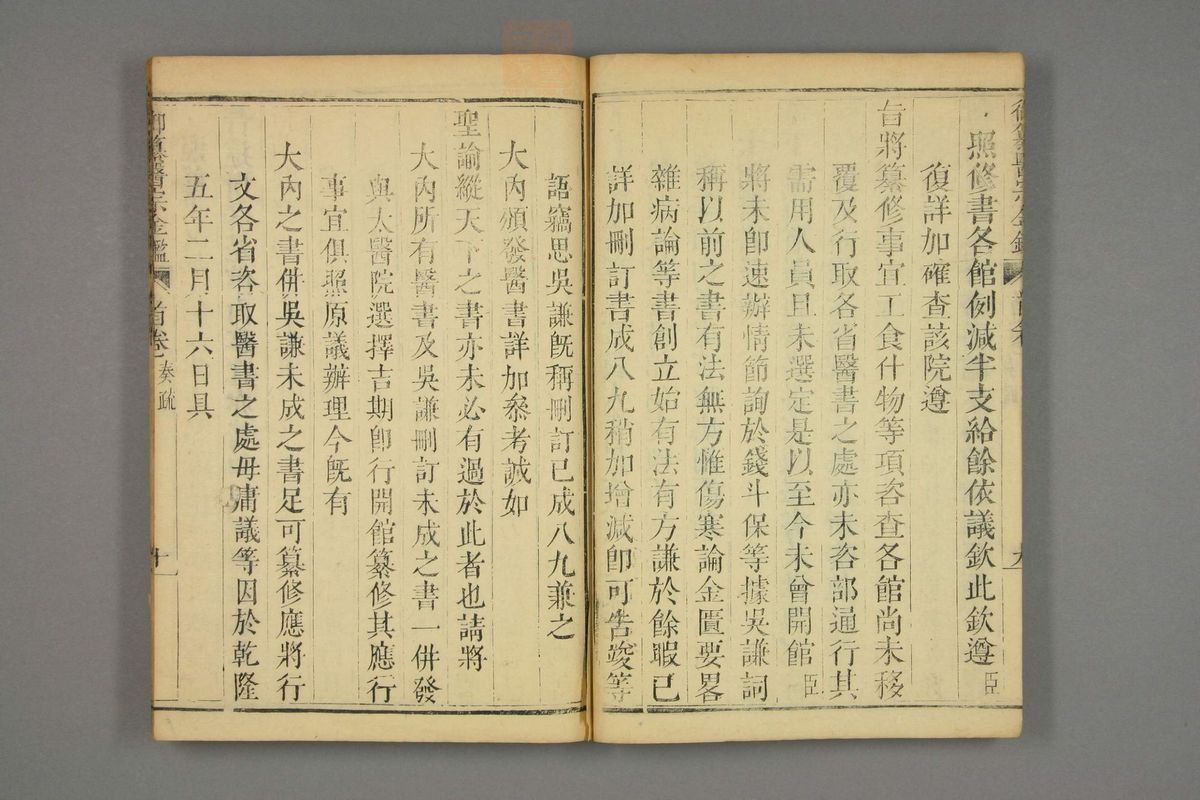 照修書各館例減半支給餘依議欽此欽遵臣
復詳加確查該院遵
旨將纂修事宜工食什物等項咨查各館尚未移
覆及行取各省醫書之處亦未咨部通行其
需用人員且未選定是以至今未曾開館臣
將未卽速辦情節詢於錢斗保等據吳謙詞
稱以前之書有法無方惟傷寒論金匱要畧
雜病論等書創立始有法有方謙於餘暇已
詳加刪訂書成八九稍加增減卽可告竣等
語竊思吳謙旣稱刪訂已成八九兼之
大內頒發醫書詳加叅考誠如
聖諭縱天下之書亦未必有過於此者也請將
大內所有醫書及吳謙刪訂未成之書一併發
與太醫院選擇吉期卽行開館纂修其應行
事宜俱照原議辦理今旣有
大內之書併吳謙未成之書足可纂修應將行
文各省咨取醫書之處毋庸議等因於乾隆
五年二月十六日具
御纂醫宗金鑑 首卷 奏疏 十